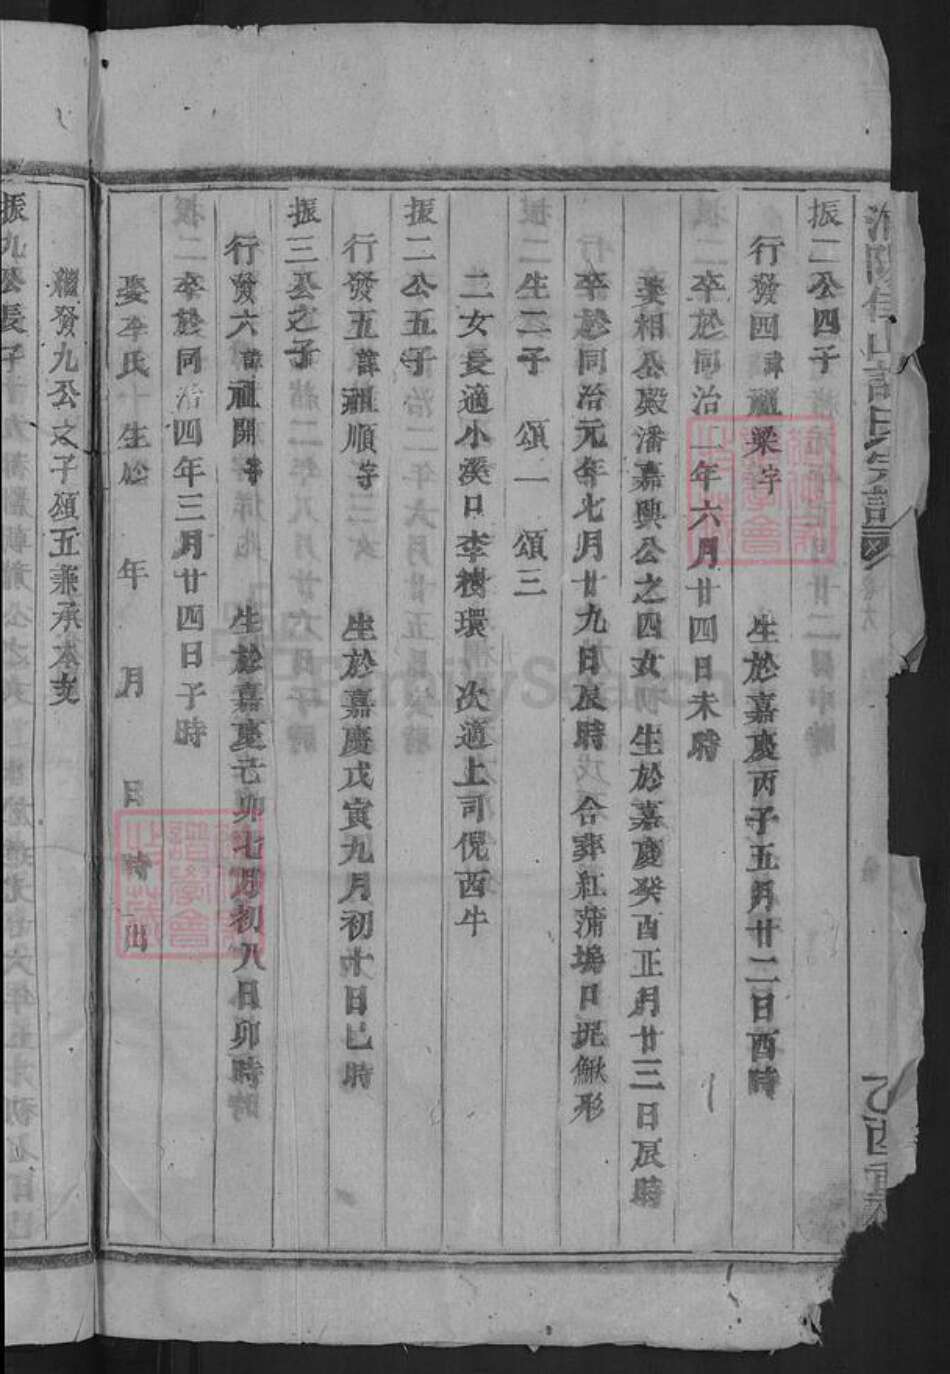 振二公四子
行發四諱祖梁字 生於嘉慶丙子五月廿二日酉時
卒於同治 年六月廿四日未時
娶相公殿潘嘉興公之四女 生於嘉慶癸酉正月廿三日辰時
卒於同治元年七月廿九日辰時 合葬紅蒲塢日坭鰍形
生二子 頌一 頌三
二女長適小溪口李樓環 次適上司倪西牛
振二公五子
行發五諱祖順字 生於嘉慶戊寅九月初十日巳時
振三公之子
行發六諱祖開字 生於嘉慶己卯七月初八日卯時
卒於同治四年三月廿四日子時
娶李氏 生於 年 月 日 時
繼發九公之子頌五兼承本支
振九公長子
氏宗譜
乙酉重
FamilySearch